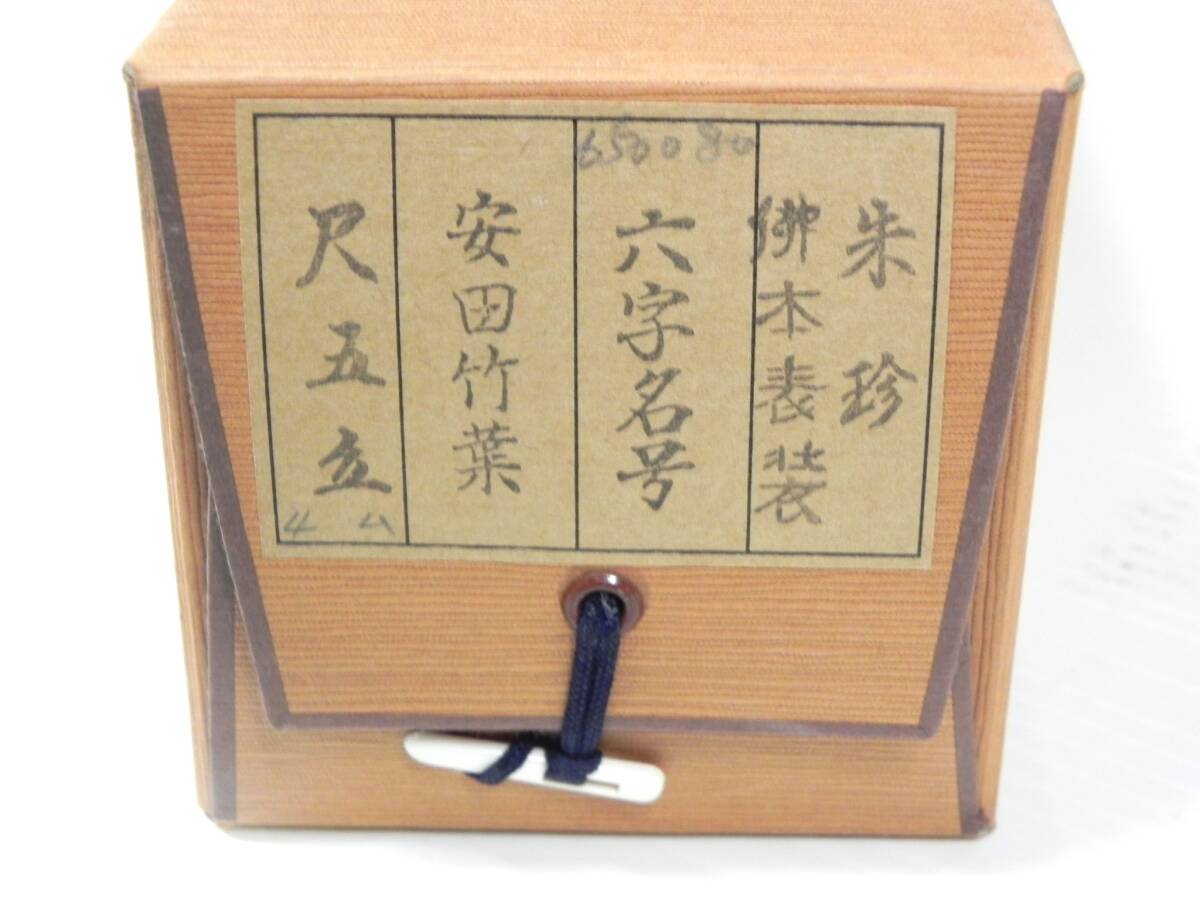 朱珍
佛本表装
650080
六字名号
安田竹葉
尺五立
4ム